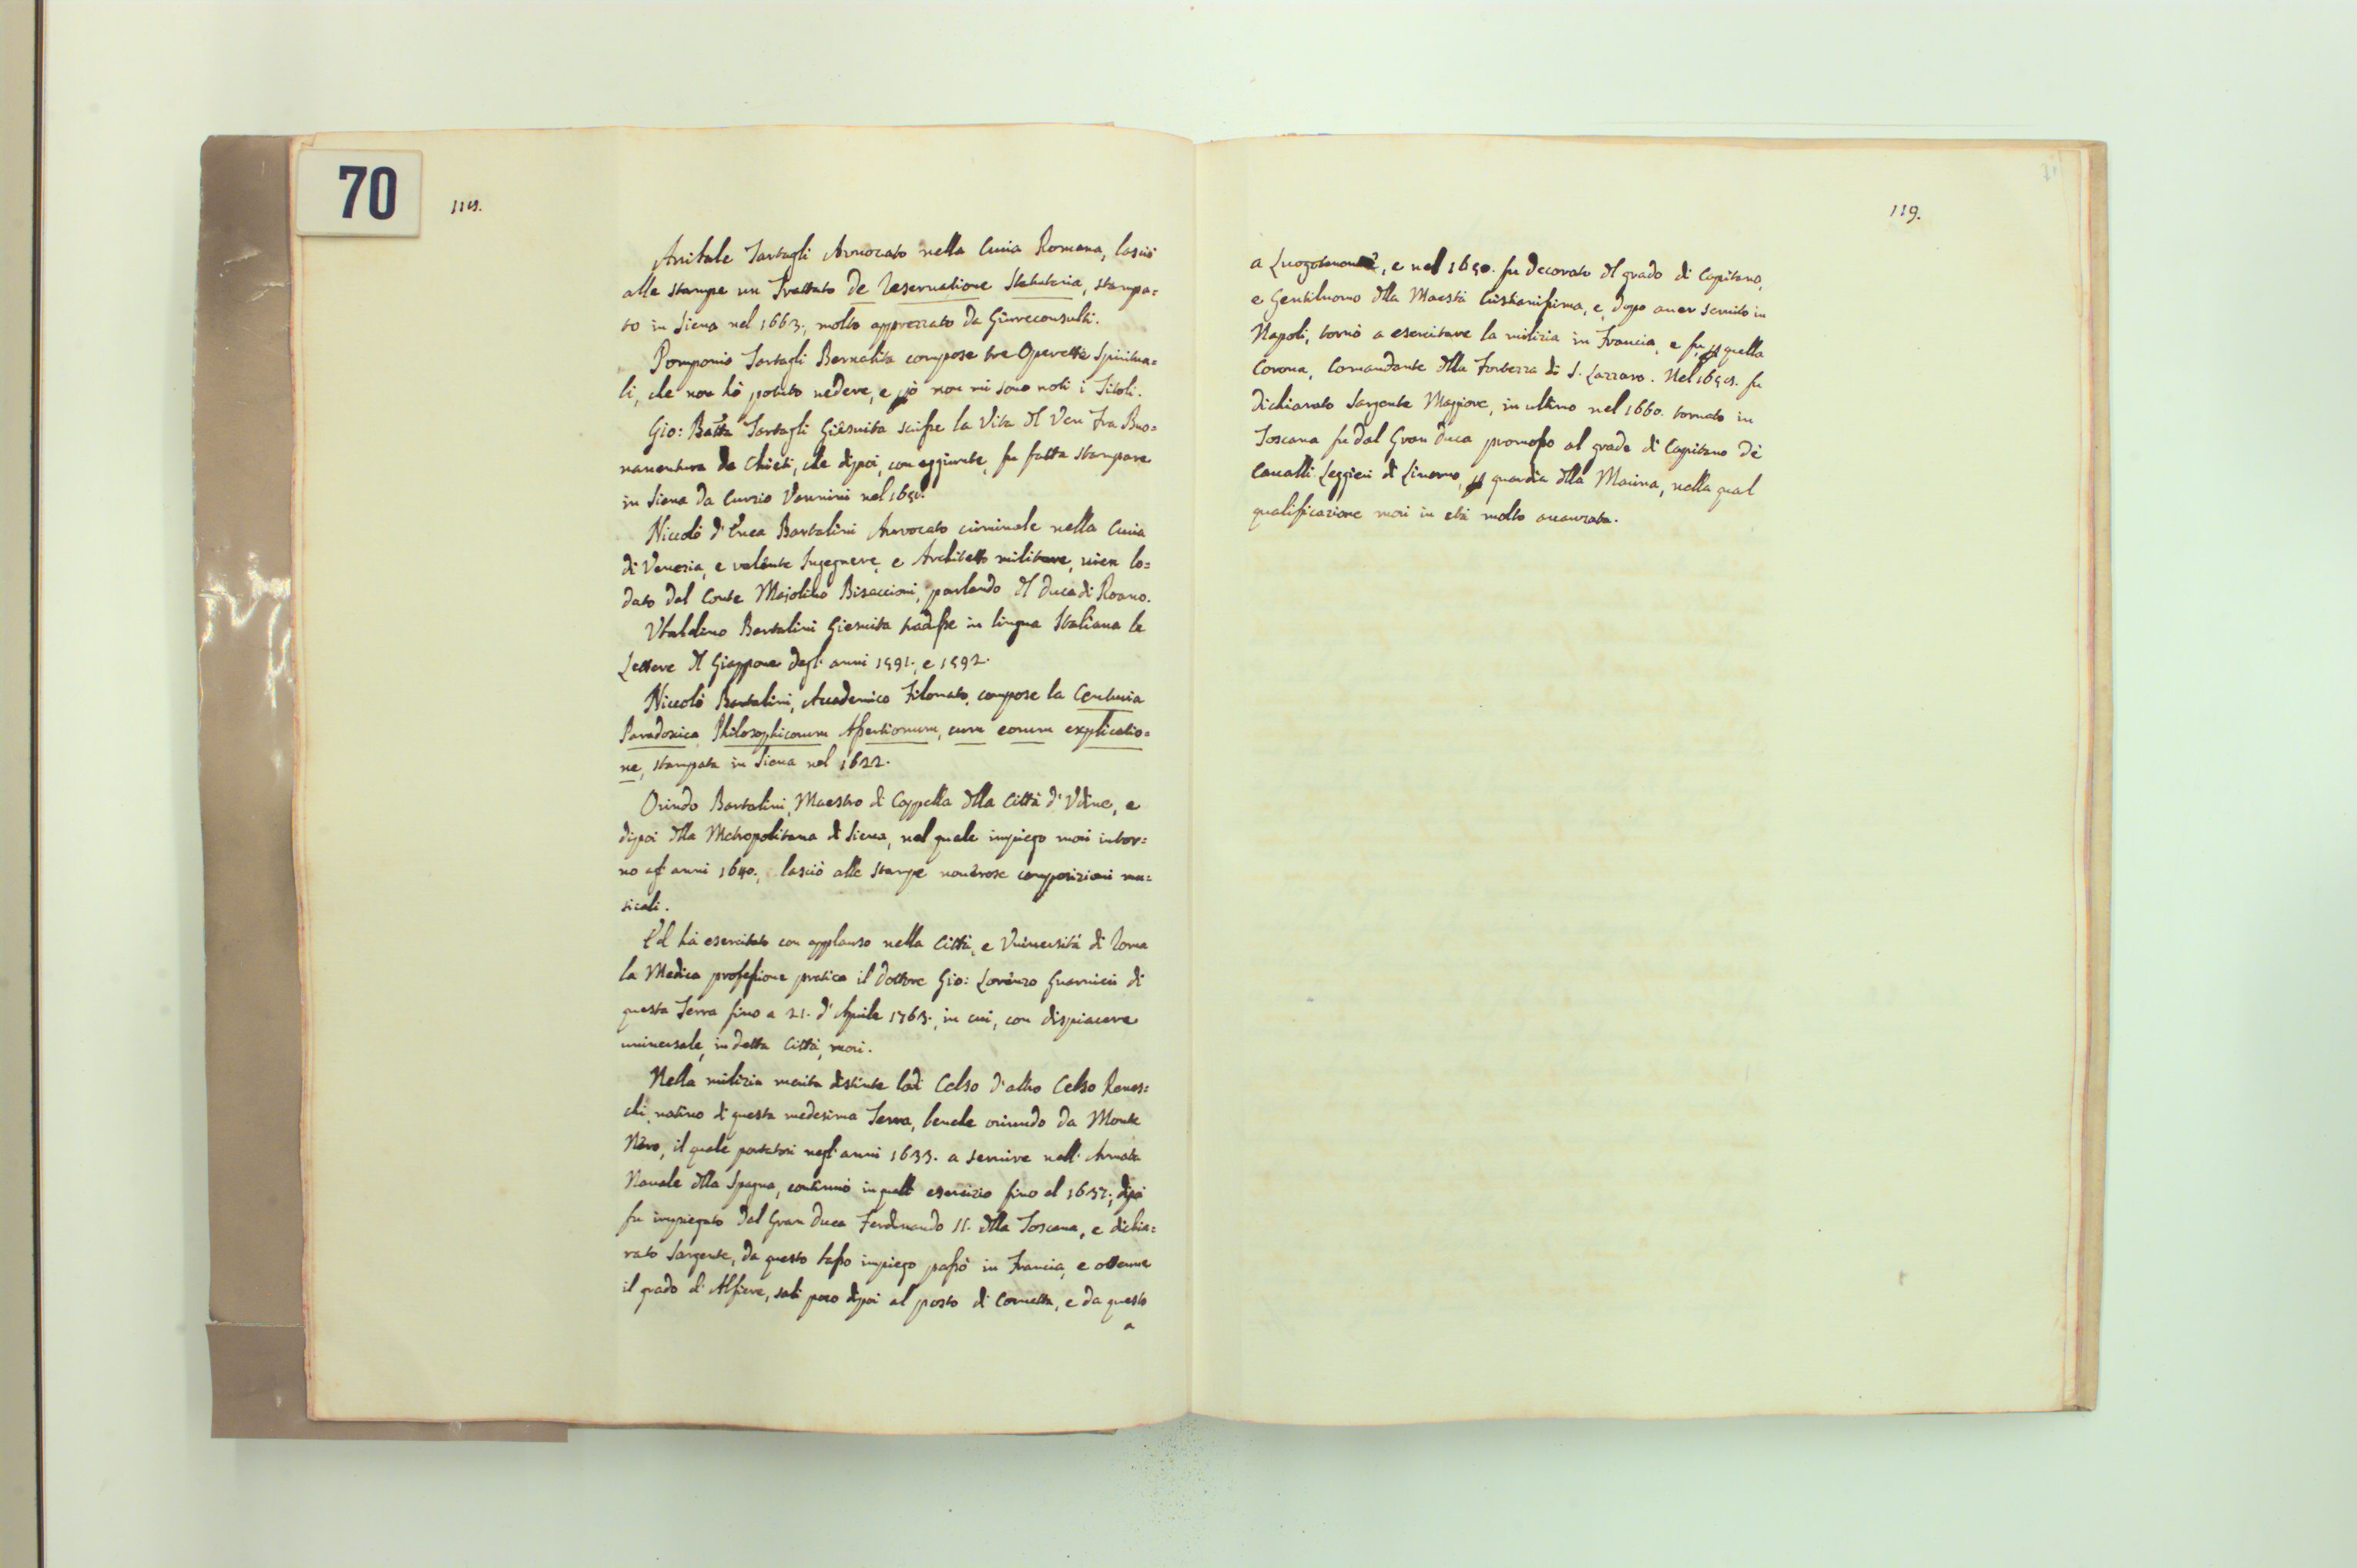 70
118.
Annibale Tartagli Avvocato nella Curia Romana, lasciò
alle stampe un Trattato de Reservatione Statutaria, stampa=
to in Siena nel 1663., molto apprezzato da Giureconsulti.
Pomponio Tartagli Bernabita compose tre Operette Spiritua=
li, che non hò potuto vedere, e però non mi sono noti i Titoli.
Gio: Batta Tartagli Giesuita scrisse la Vita del Ven Fra Buo=
naventura da Chieti, che dipoi, con aggiunte, fu fatta stampare
in Siena da Curzio Vannini nel
Niccolò d'Enea Bartalini Avvocato criminale nella Curia
di Venezia, e valente Ingegnere, e Architetto militare, vien lo=
dato dal Conte Majolino Bisaccioni, parlando del Duca di Roano.
Ubaldino Bartalini Giesuita tradusse in lingua Italiana le
Lettere del Giappone degl' anni 1591., e 1592.
Niccolò Bartalini, Accademico Filomato, compose la Centuria
Paradoxica Philosophicorum Assertionum, cum eorum explicatio=
ne, stampata in Siena nel 1622.
Orindo Bartalini, Maestro di Cappella della Città d'Udine, e
dipoi della Metropolitana di Siena, nel quale impiego morì intor=
no agl' anni 1640., lasciò alle stampe numerose composizioni mu=
sicali.
Ed hà esercitato con applauso nella Città, e Università di Roma
la Medica professione pratica il Dottore Gio: Lorenzo Guarnieri di
questa Terra fino a 21. d'Aprile in cui, con dispiacere
universale, in detta Città, morì.
Nella milizia merita distinte lodi Celso d'altro Celso
nativo di questa medesima Terra, benche oriundo da Monte
Nero, il quale portatosi negl' anni 1633. a servire nell' Armata
Navale della Spagna, continuò in quell' esercizio fino al 1637.; dipoi
fu impiegato dal Gran Duca Ferdinando II. della Toscana, e dichia=
rato Sargente, da questo impiego passò in Francia, e ottenne
il grado di Alfiere, salì poco dipoi al posto di Cornetta, e da questo
a
119.
a e nel 1650. fu decorato del grado di Capitano,
e Gentiluomo della Maestà Cristianissima, e, dopo aver servito in
Napoli, tornò a esercitare la milizia in Francia, e fu, per quella
Corona, Comandante della Fortezza di S. Lazzaro. Nel fu
dichiarato Sargente Maggiore, in ultimo nel 1660. tornato in
Toscana fu dal Gran Duca promosso al grado di Capitano de'
Cavalli Leggieri di Livorno, per guardia della Marina, nella qual
qualificazione morì in età molto avanzata.